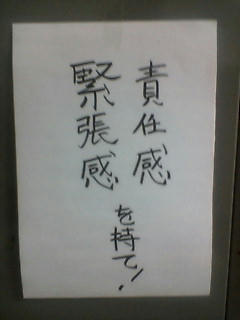 責任感
緊張感
を持て!